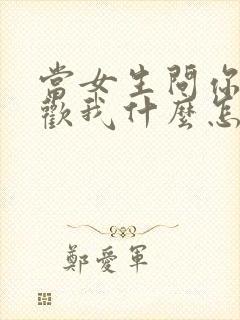 當女生問你
歡我什麼怎
鄭愛軍